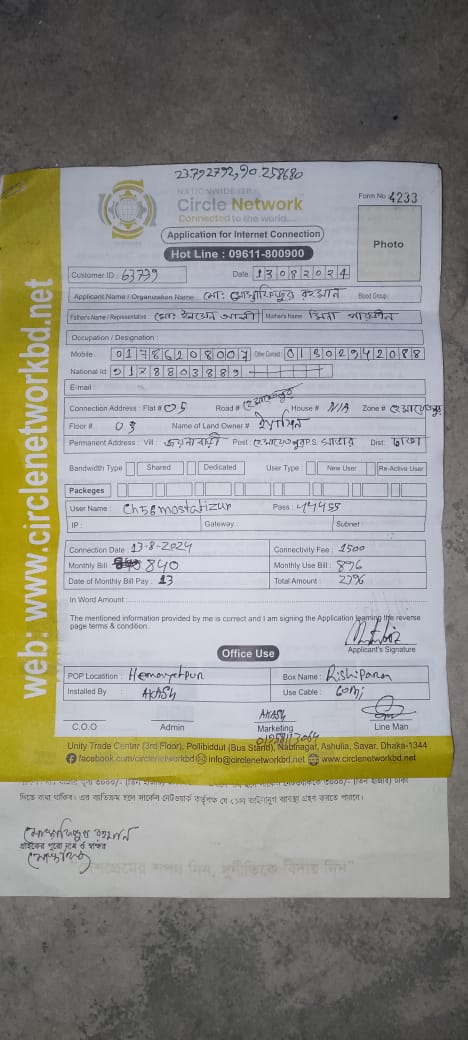 23.792792,90.258680
NATIONWIDE ISP
Circle Network
Connected to the world....
Form No 4233
Application for Internet Connection
Hot Line : 09611-800900
Photo
Customer ID : 63779
Date: 13082024
Applicant Name / Organization Name : মো: মোস্তাফিজুর রহমান Blood Group:
Father's Name / Representative মো: আলী Mother's Name:
Occupation / Designation :
Mobile : 01786208007 Other Contact : 01302942088
National Id:
E-mail :
Connection Address : Flat # 05 Road # হেমায়েতপুর House # N/A Zone # হেমায়েতপুর
Floor # 03 Name of Land Owner # ইয়াসিন
Permanent Address : Vill : জয়নাবাড়ী Post : হেমায়েতপুর P.S সাভার Dist: ঢাকা
Bandwidth Type Shared Dedicated User Type : New User Re-Active User
Packeges
User Name : Ch5gmostafizur Pass : 44455
IP : Gateway : Subnet :
Connection Date 13-8-2024 Connectivity Fee : 1500
Monthly Bill 840 Monthly Use Bill : 896
Date of Monthly Bill Pay : 13 Total Amount : 2396
In Word Amount :
The mentioned information provided by me is correct and I am signing the Application learning the reverse
page terms & condition.
Applicant's Signature
Office Use
POP Locatition : Hemayetpur Box Name : Rishipara
Installed By : AKASH Use Cable : 60mi
AKASH
C.O.O Admin Marketing Line Man
Unity Trade Center (3rd Floor), Pollibiddut (Bus Stand), Nabinagar, Ashulia, Savar, Dhaka-1344
facebook.com/circlenetworkbd info@circlenetworkbd.net www.circlenetworkbd.net
web: www.circlenetworkbd.net
দিতে বাধ্য থাকিব। এর ব্যতিক্রম হলে সার্কেল নেটওয়ার্ক কর্তৃপক্ষ যে কোন আইনানুগ ব্যবস্থা গ্রহন করতে পারবে।
মোস্তাফিজুর রহমান
গ্রাহকের পুরো নাম ও স্বাক্ষর
মোস্তাফিজ